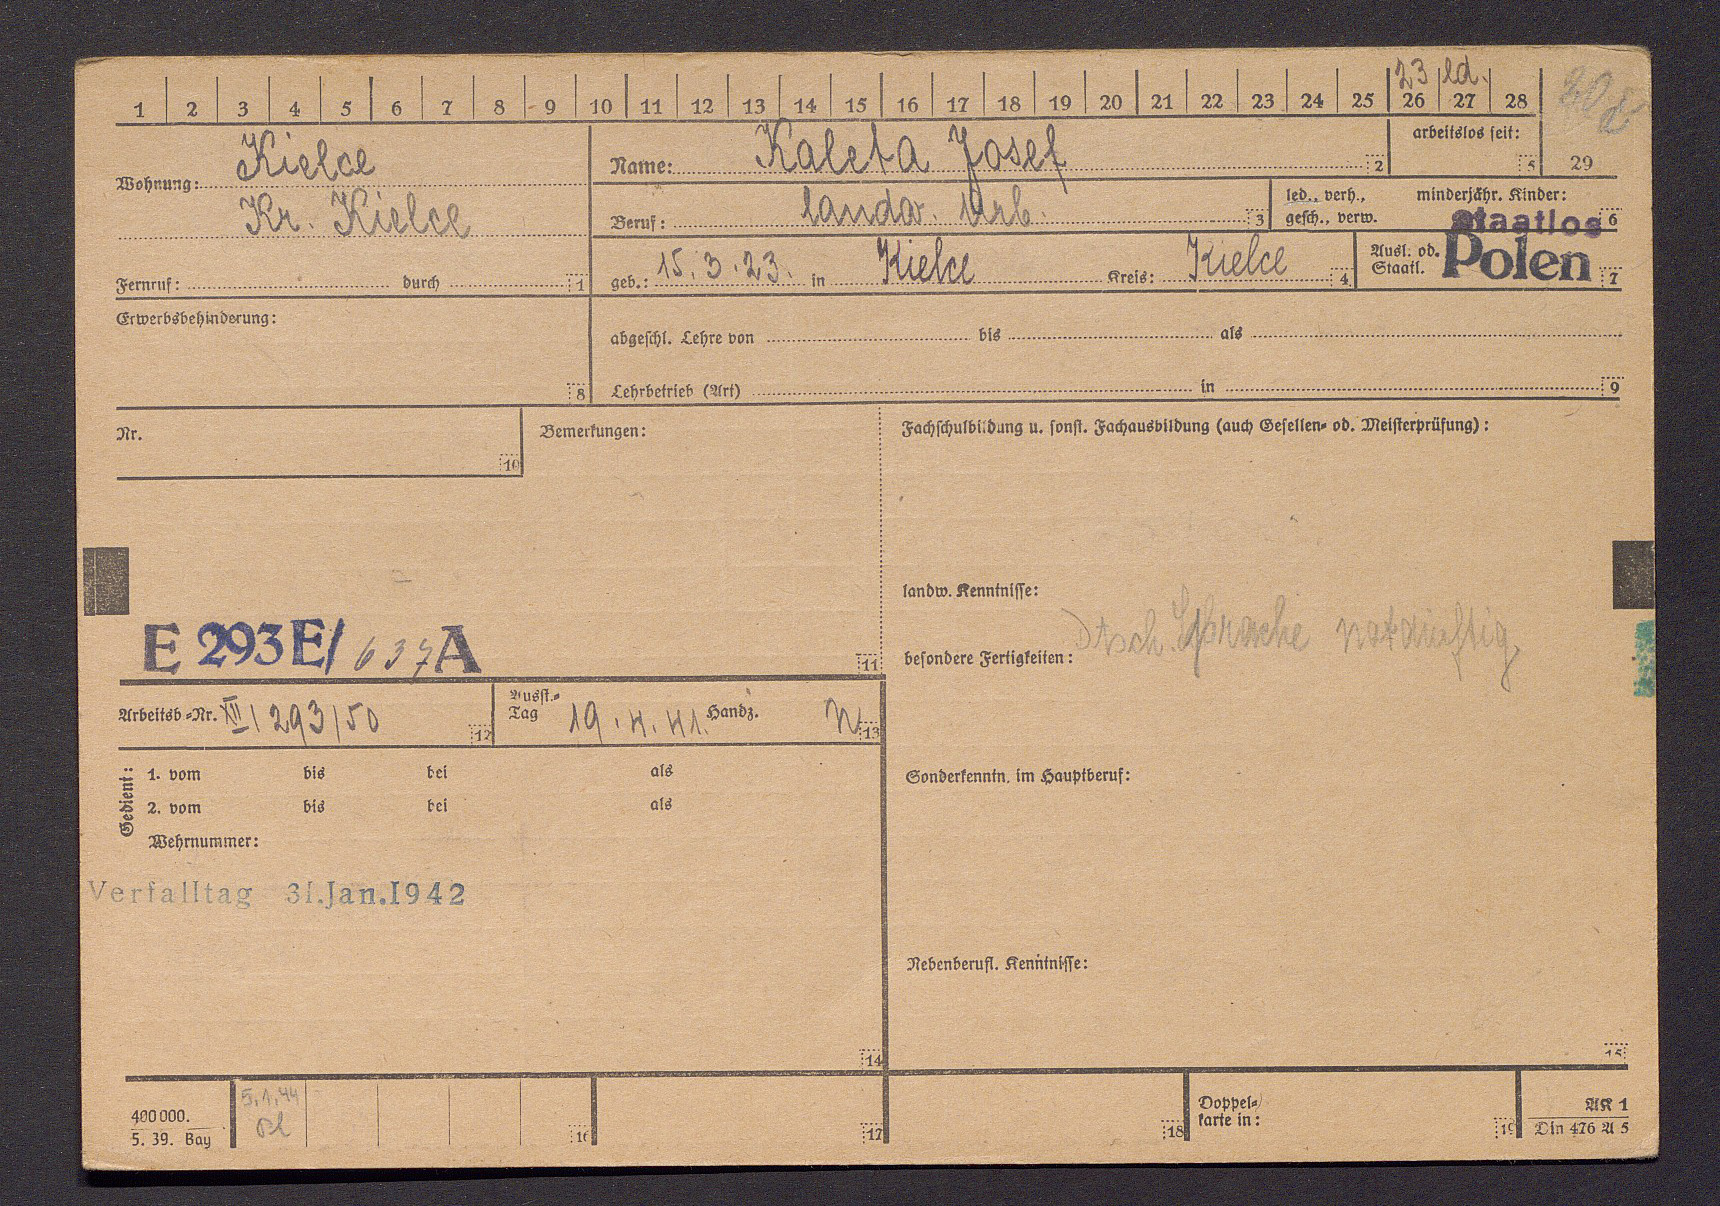 23 ld.
1 2 3 4 5 6 7 8 9 10 11 12 13 14 15 16 17 18 19 20 21 22 23 24 25 26 27 28
29
arbeitslos seit: 5
Wohnung: Kielce
Kr. Kielce
Fernruf: durch 1
Name: Kaleta Josef 2
Beruf: landw. Arb. 3
led., verh., gesch., verw.
minderjähr. Kinder: 6
geb.: 15.3.23. in Kielce Kreis: Kielce 4
Ausl. od. Staatl. staatlos Polen 7
Erwerbsbehinderung: 8
abgeschl. Lehre von bis als
Lehrbetrieb (Art) in 9
Nr. 10
Bemerkungen:
E 293 E/ 637 A 11
Fachschulbildung u. sonst. Fachausbildung (auch Gesellen- od. Meisterprüfung):
landw. Kenntnisse:
Dtsch. Sprache notdürftig
besondere Fertigkeiten:
Arbeitsb-Nr. XII/293/50 12
Ausst.-Tag 19.4.41. Handz. 13
Gedient:
1. vom bis bei als
2. vom bis bei als
Wehrnummer:
Verfalltag 31.Jan.1942
14
Sonderkenntn. im Hauptberuf:
Nebenberufl. Kenntnisse:
15
400000.
5. 39. Bay
5.1.44
16
17
18
Doppel-
karte in: 19
AK 1
Din 476 A 5